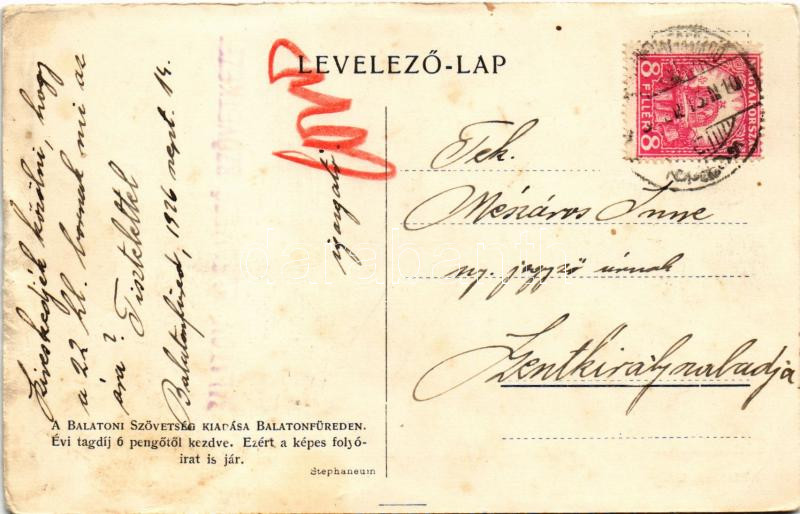 LEVELEZŐ-LAP
Sziveskedjék közölni, hogy
a 22 hl. bornak mi az
ára?
Tisztelettel
Balatonfüred, 1926 szept. 14.
igazgató.
Tek.
Mészáros Imre
ny. jegyző úrnak
Szentkirályszabadja
8 FILLÉR 8
MAGYARORSZÁG
A BALATONI SZÖVETSÉG KIADÁSA BALATONFÜREDEN.
Évi tagdíj 6 pengőtől kezdve. Ezért a képes folyó-
irat is jár.
Stephaneum